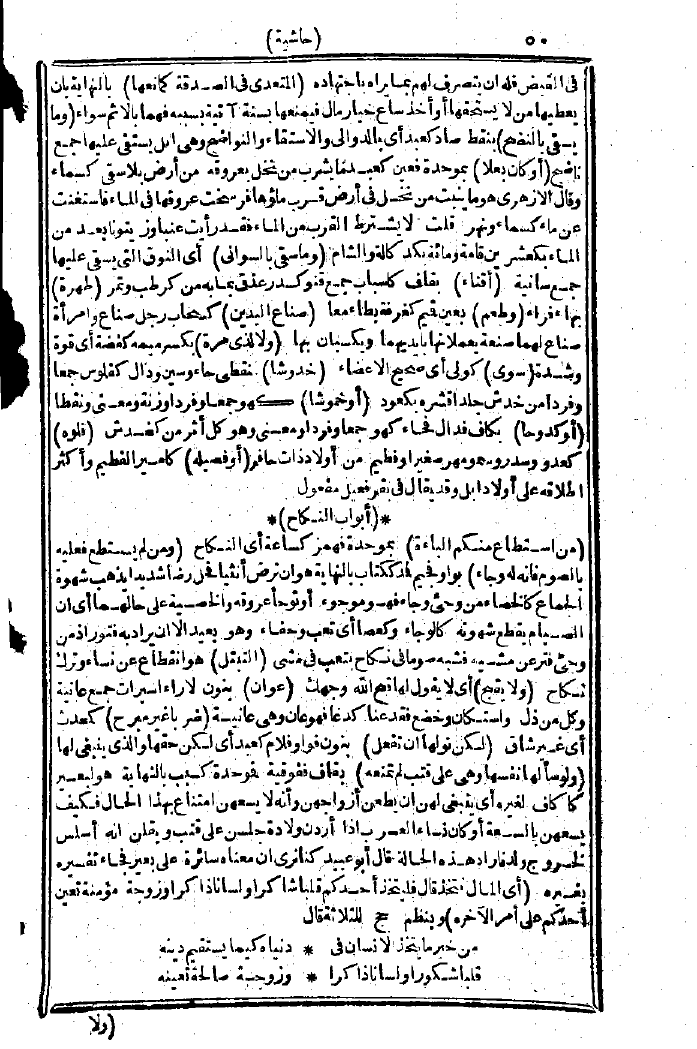 ٥٠ (حاشية)
فى القبض فله ان يتصرف لهم بما يراه باجتهاده (المتعدى فى الصدقة كمانعها) بالنهاية بان
يعطيها من لا يستحقها أو أخذ ساع خيار مال فيمنعها بسنة آتية بسببه فهما بالاثم سواء (وما
يسقى بالنضح) بنقط صاد كعبد أى بالدوالى والاستقاء والنواضح وهى ابل يستقى عليها جمع
ناضح (أو كان بعلا) بموحدة فعين كعبد ما يشرب من نخل بعروقه من أرض بلا سقى كسماء
وقال الازهرى هو ما ينبت من نخل فى أرض قرب ماؤها فرسخت عروقها فى الماء فاستغنت
عن ماء كسماء ونهر قلت لا يشترط القرب من الماء فقد رأيت عنبا وزيتونا بعد من
الماء بكعشرين قامة ومائة بكد كالة والشام (وما سقى بالسوانى) أى النوق التى يسقى عليها
جمع سانية (أقناء) بقاف كاسباب جمع قنو كسدر عذق بما به من كرطب وتمر (طهرة)
بهاء فراء (وطعم) بعين فميم كغرفة بطاء معا (صناع اليدين) كسحاب رجل صناع وامرأة
صناع لهما صنعة يعملانها بايديهما ويكسبان بها (ولا لذى مرة) بكسر ميمه كفضة أى قوة
وشدة (سوى) كولى أى صحيح الاعضاء (خدوشا) بنقطى حاء وسين ودال كفلوس جمعا
وفردا من خدش جلدا قشره بكعود (أو خموشا) كهو جمعا وفردا وزنة ومعنى ونقطا
(أو كدوحا) بكاف فدال فحاء كهو جمعا وفردا ومعنى وهو كل أثر من كخدش (فلوه)
كعدو وسدر وسمو مهر صغير أو فطيم من أولاد ذات حافر (أو فصيله) كامير الفطيم وأكثر
اطلاقه على أولاد ابل وقد يقال فى بقر فعيل مفعول
*(أبواب النكاح)*
(من استطاع منكم الباءة) بموحدة فهمز كساعة أى النكاح (ومن لم يستطع فعليه
بالصوم فانه له وجاء) بواو فجيم فمد ككتاب بالنهاية هو ان ترض أنثيا فحل رضا شديدا يذهب شهوة
الجماع كالخصاء من وجئ وجاء فهو موجوء أو توجأ عروقه والخصية على حالهما أى ان
الصيام يقطع شهوته كالوجاء وكعصا أى تعب وحفاء وهو بعيد الا ان يراد به فتور اذ من
وجئ فتر عن مشيه فشبه صوما فى نكاح بتعب فى مشى (التبتل) هو انقطاع عن نساء وترك
نكاح (ولا يقبح) أى لا يقول لها قبح الله وجهك (عوان) بنون لا راء اسيرات جمع عانية
وكل من ذل واستكان وخضع فقد عنا كدعا فهو عان وهى عانية (ضربا غير مبرح) كمحدث
أى غير شاق (لكن نولها أن تفعل) بنون فواو فلام كعبد أى لكن حقها والذى ينبغى لها
(ولو سألها نفسها وهى على قتب لم تمنعه) بقاف ففوقية فوحدة كسبب بالنهاية هو لبعير
كاكاف لغيره أى ينبغى لهن ان يطعن أزواجهن وأنه لا يسعهن امتناع بهذا الحال فكيف
يسعهن بالسعة أو كان نساء العرب اذا أردن ولادة جلسن على قتب ويقلن انه أسلس
لخروج ولد فاراد هذه الحالة قال أبو عبيد كنا نرى ان معناه سائرة على بعير فجاء تفسيره
بغيره (أى المال نتخذ قال فليتخذ أحدكم قلبا شاكرا ولسانا ذاكرا وزوجة مؤمنة تعين
أحدكم على أمر الآخره) وبنظم حج للثلاثة قال
من خير ما يتخذ الانسان فى * دنياه كيما يستقيم دينه
قلبا شكورا ولسانا ذاكرا * وزوجة صالحة تعينه
(ولا